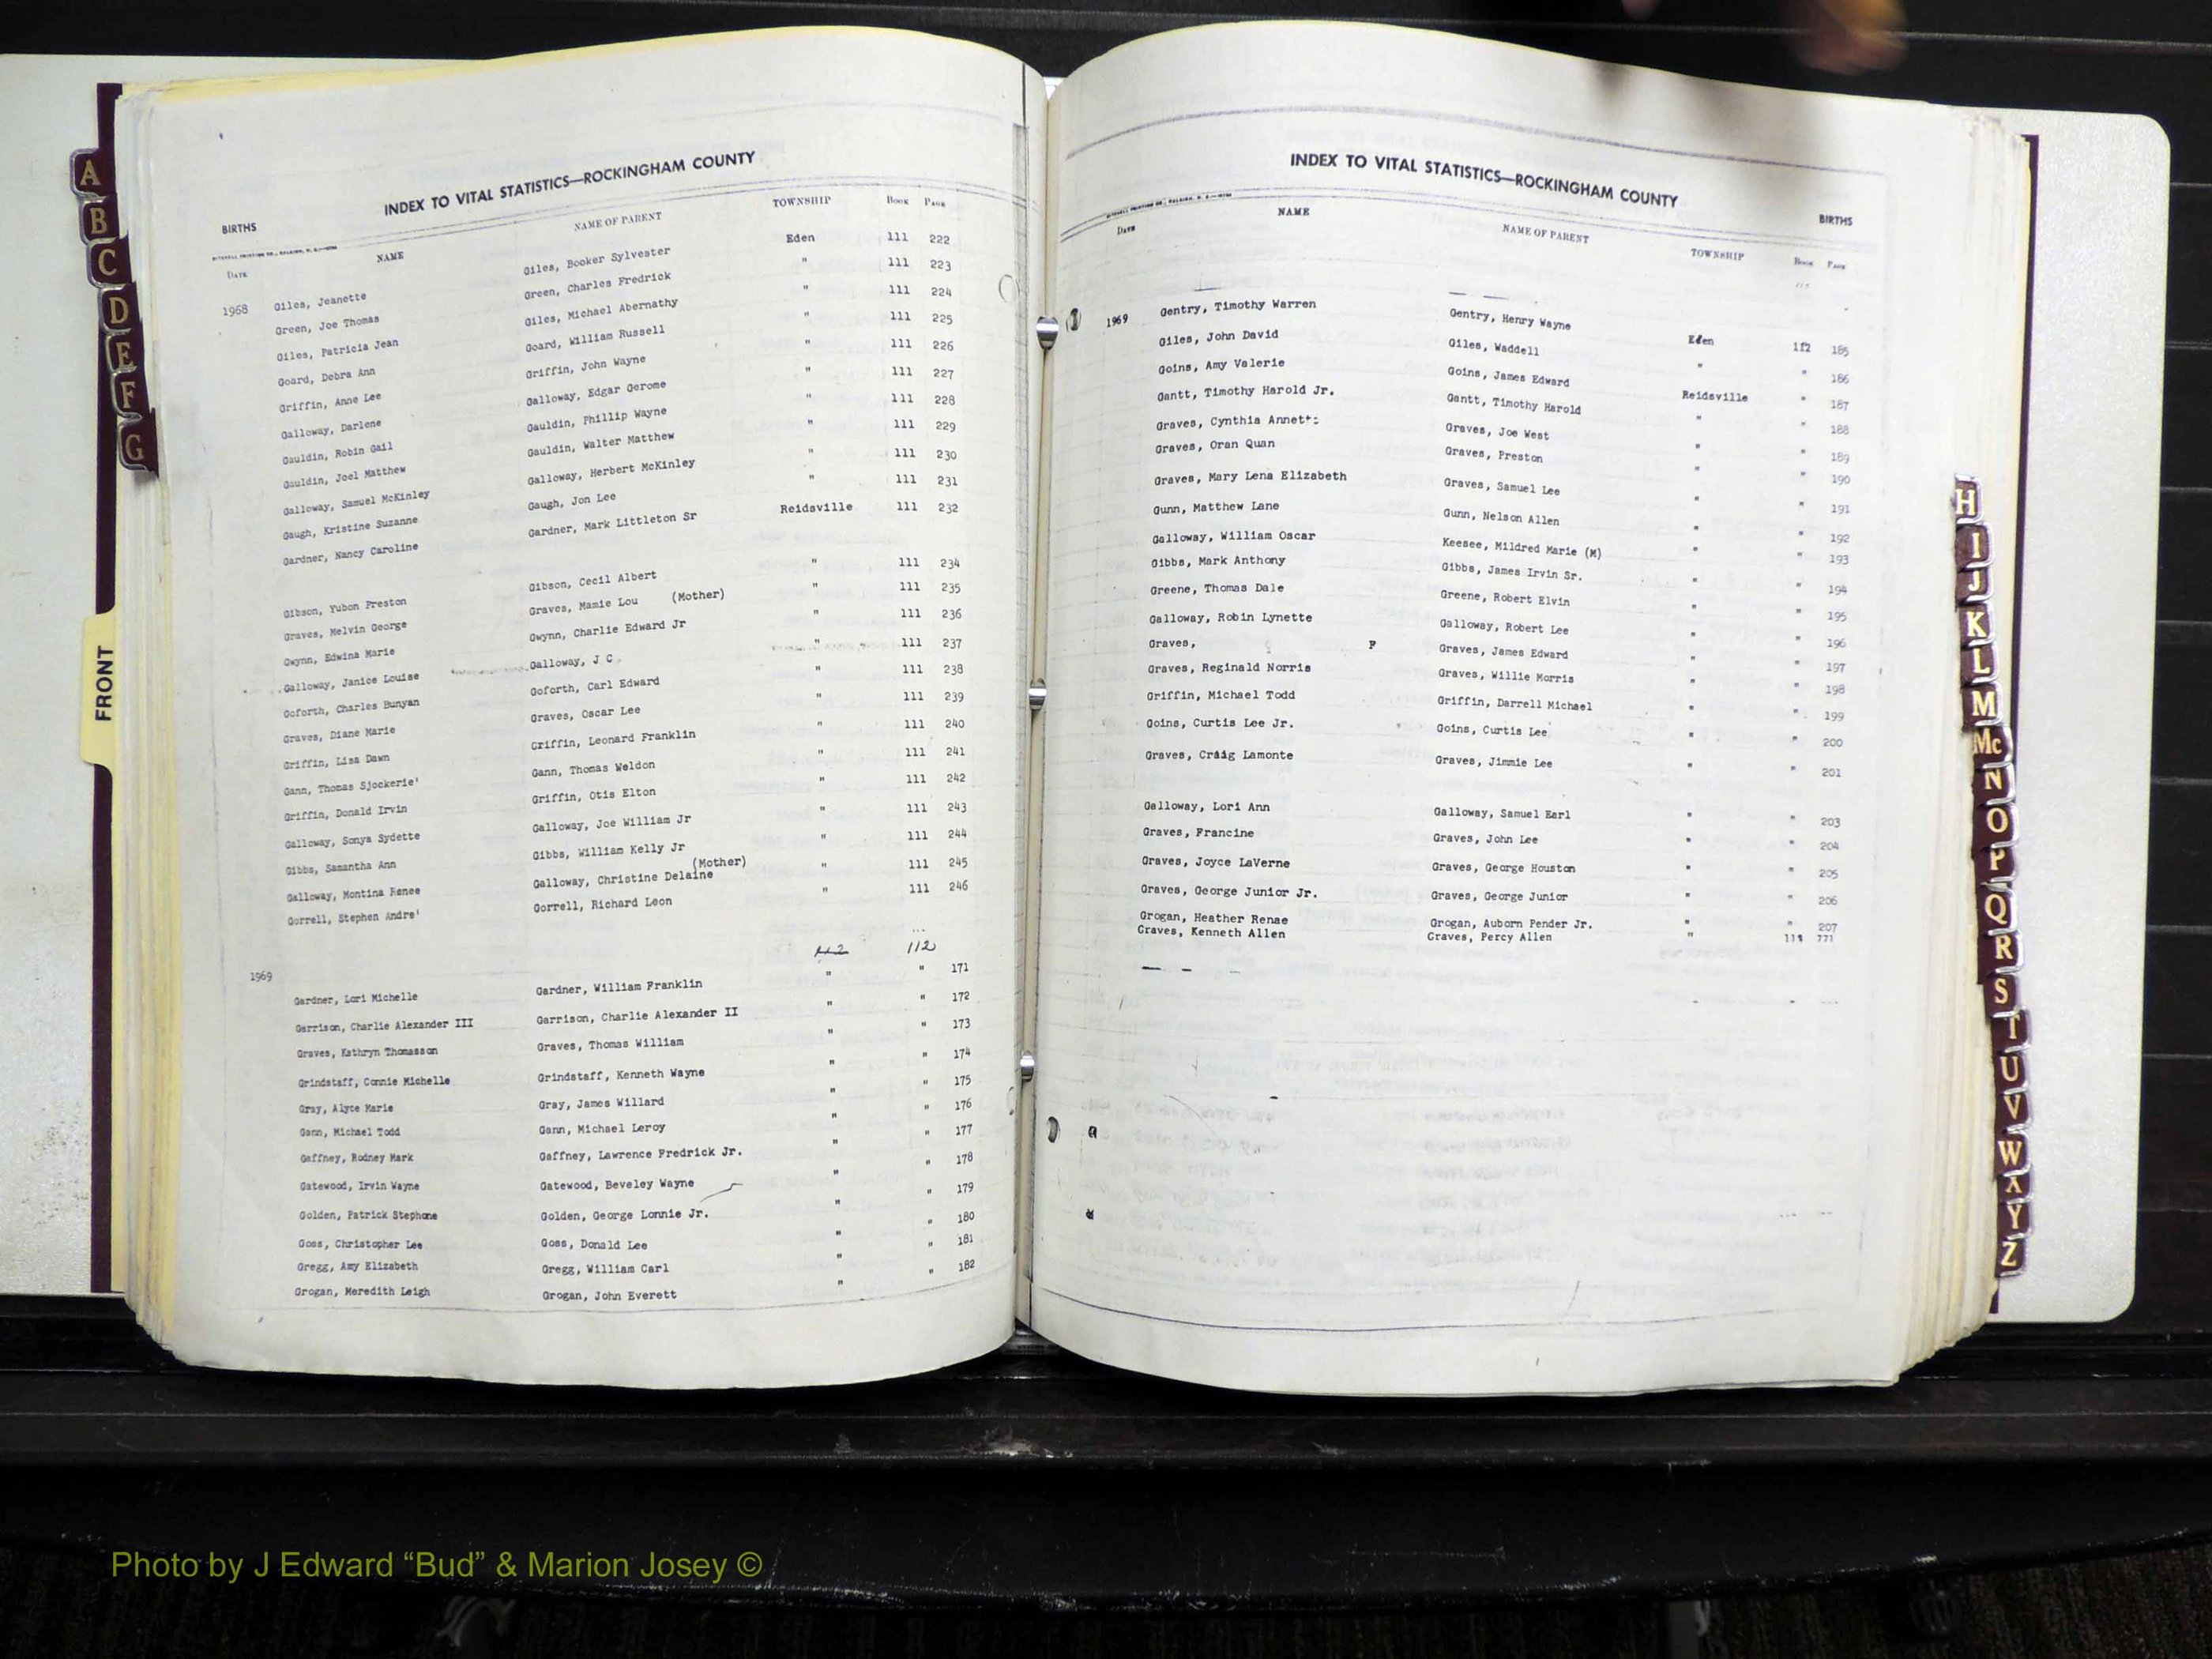 INDEX TO VITAL STATISTICS—ROCKINGHAM COUNTY
BIRTHS
DATE NAME NAME OF PARENT TOWNSHIP BOOK PAGE
1968 Giles, Jeanette Giles, Booker Sylvester Eden 111 222
Green, Joe Thomas Green, Charles Fredrick " 111 223
Giles, Patricia Jean Giles, Michael Abernathy " 111 224
Goard, Debra Ann Goard, William Russell " 111 225
Griffin, Anne Lee Griffin, John Wayne " 111 226
Galloway, Darlene Galloway, Edgar Gerome " 111 227
Gauldin, Robin Gail Gauldin, Phillip Wayne " 111 228
Gauldin, Joel Matthew Gauldin, Walter Matthew " 111 229
Galloway, Samuel McKinley Galloway, Herbert McKinley " 111 230
Gaugh, Kristine Suzanne Gaugh, Jon Lee " 111 231
Gardner, Nancy Caroline Gardner, Mark Littleton Sr Reidsville 111 232
Gibson, Yubon Preston Gibson, Cecil Albert " 111 234
Graves, Melvin George Graves, Mamie Lou (Mother) " 111 235
Gwynn, Edwina Marie Gwynn, Charlie Edward Jr " 111 236
Galloway, Janice Louise Galloway, J C " 111 237
Goforth, Charles Bunyan Goforth, Carl Edward " 111 238
Graves, Diane Marie Graves, Oscar Lee " 111 239
Griffin, Lisa Dawn Griffin, Leonard Franklin " 111 240
Gann, Thomas Sjockerie' Gann, Thomas Weldon " 111 241
Griffin, Donald Irvin Griffin, Otis Elton " 111 242
Galloway, Sonya Sydette Galloway, Joe William Jr " 111 243
Gibbs, Samantha Ann Gibbs, William Kelly Jr " 111 244
Galloway, Montina Renee Galloway, Christine Delaine (Mother) " 111 245
Gorrell, Stephen Andre' Gorrell, Richard Leon " 111 246
112 112
1969
Gardner, Lori Michelle Gardner, William Franklin " " 171
Garrison, Charlie Alexander III Garrison, Charlie Alexander II " " 172
Graves, Kathryn Thomasson Graves, Thomas William " " 173
Grindstaff, Connie Michelle Grindstaff, Kenneth Wayne " " 174
Gray, Alyce Marie Gray, James Willard " " 175
Gann, Michael Todd Gann, Michael Leroy " " 176
Gaffney, Rodney Mark Gaffney, Lawrence Fredrick Jr. " " 177
Gatewood, Irvin Wayne Gatewood, Beveley Wayne " " 178
Golden, Patrick Stephone Golden, George Lonnie Jr. " " 179
Goss, Christopher Lee Goss, Donald Lee " " 180
Gregg, Amy Elizabeth Gregg, William Carl " " 181
Grogan, Meredith Leigh Grogan, John Everett " " 182
INDEX TO VITAL STATISTICS—ROCKINGHAM COUNTY
BIRTHS
DATE NAME NAME OF PARENT TOWNSHIP BOOK PAGE
1969 Gentry, Timothy Warren Gentry, Henry Wayne Eden 112 185
Giles, John David Giles, Waddell " " 186
Goins, Amy Valerie Goins, James Edward Reidsville " 187
Gantt, Timothy Harold Jr. Gantt, Timothy Harold " " 188
Graves, Cynthia Annette Graves, Joe West " " 189
Graves, Oran Quan Graves, Preston " " 190
Graves, Mary Lena Elizabeth Graves, Samuel Lee " " 191
Gunn, Matthew Lane Gunn, Nelson Allen " " 192
Galloway, William Oscar Keesee, Mildred Marie (M) " " 193
Gibbs, Mark Anthony Gibbs, James Irvin Sr. " " 194
Greene, Thomas Dale Greene, Robert Elvin " " 195
Galloway, Robin Lynette Galloway, Robert Lee " " 196
Graves, F Graves, James Edward " " 197
Graves, Reginald Norris Graves, Willie Morris " " 198
Griffin, Michael Todd Griffin, Darrell Michael " " 199
Goins, Curtis Lee Jr. Goins, Curtis Lee " " 200
Graves, Craig Lamonte Graves, Jimmie Lee " " 201
Galloway, Lori Ann Galloway, Samuel Earl " " 203
Graves, Francine Graves, John Lee " " 204
Graves, Joyce LaVerne Graves, George Houston " " 205
Graves, George Junior Jr. Graves, George Junior " " 206
Grogan, Heather Renae Grogan, Auborn Pender Jr. " " 207
Graves, Kenneth Allen Graves, Percy Allen " 771
A
B
C
D
E
F
G
FRONT
H
I
J
K
L
M
Mc
N
O
P
Q
R
S
T
U
V
W
X
Y
Z
Photo by J Edward “Bud” & Marion Josey ©